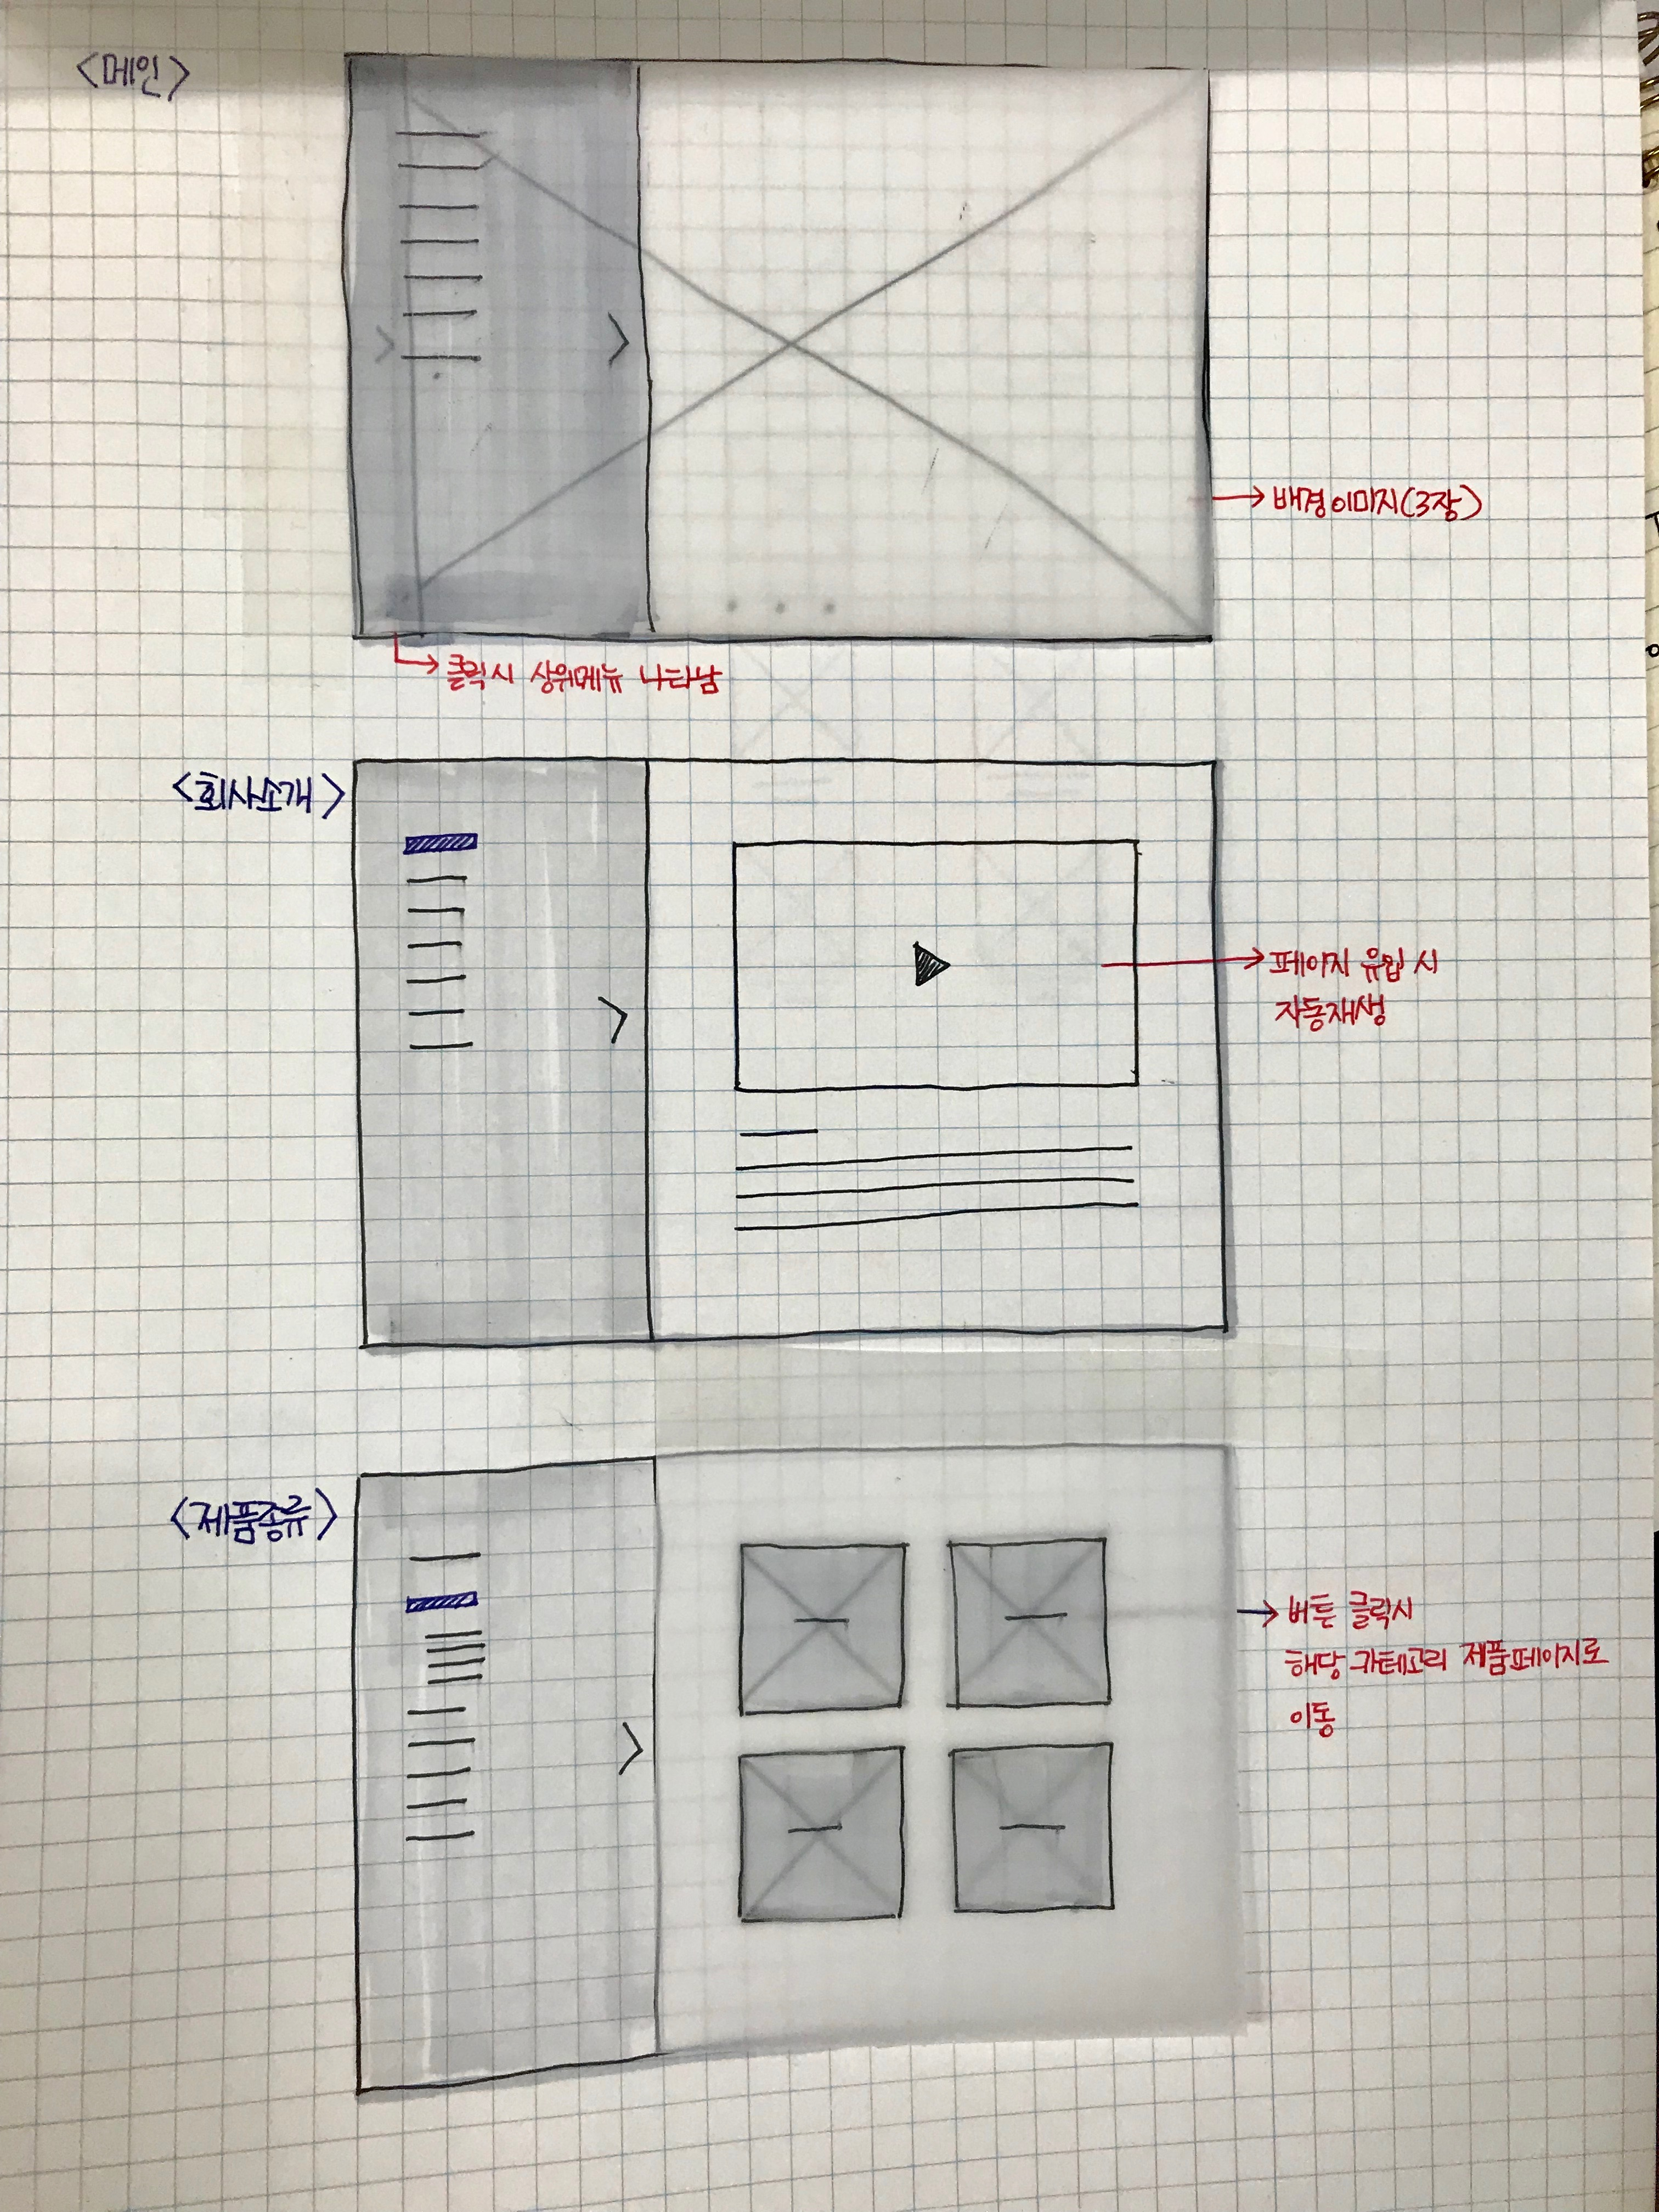 <메인>
배경이미지(3장)
클릭시 상위메뉴 나타남
<회사소개>
페이지 유입 시
자동재생
<제품종류>
버튼 클릭시
해당 카테고리 제품페이지로
이동